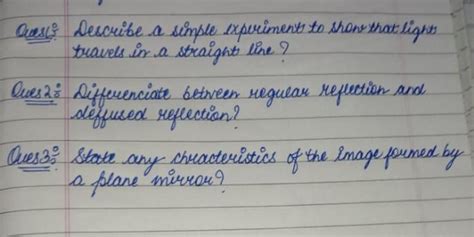 Ques1: Describe a simple experiment to show that light
travels in a straight line?
Ques2: Differenciate between reguear reflection and
deffused reflection?
Ques3: State any chracteristics of the image formed by
a plane mirror?